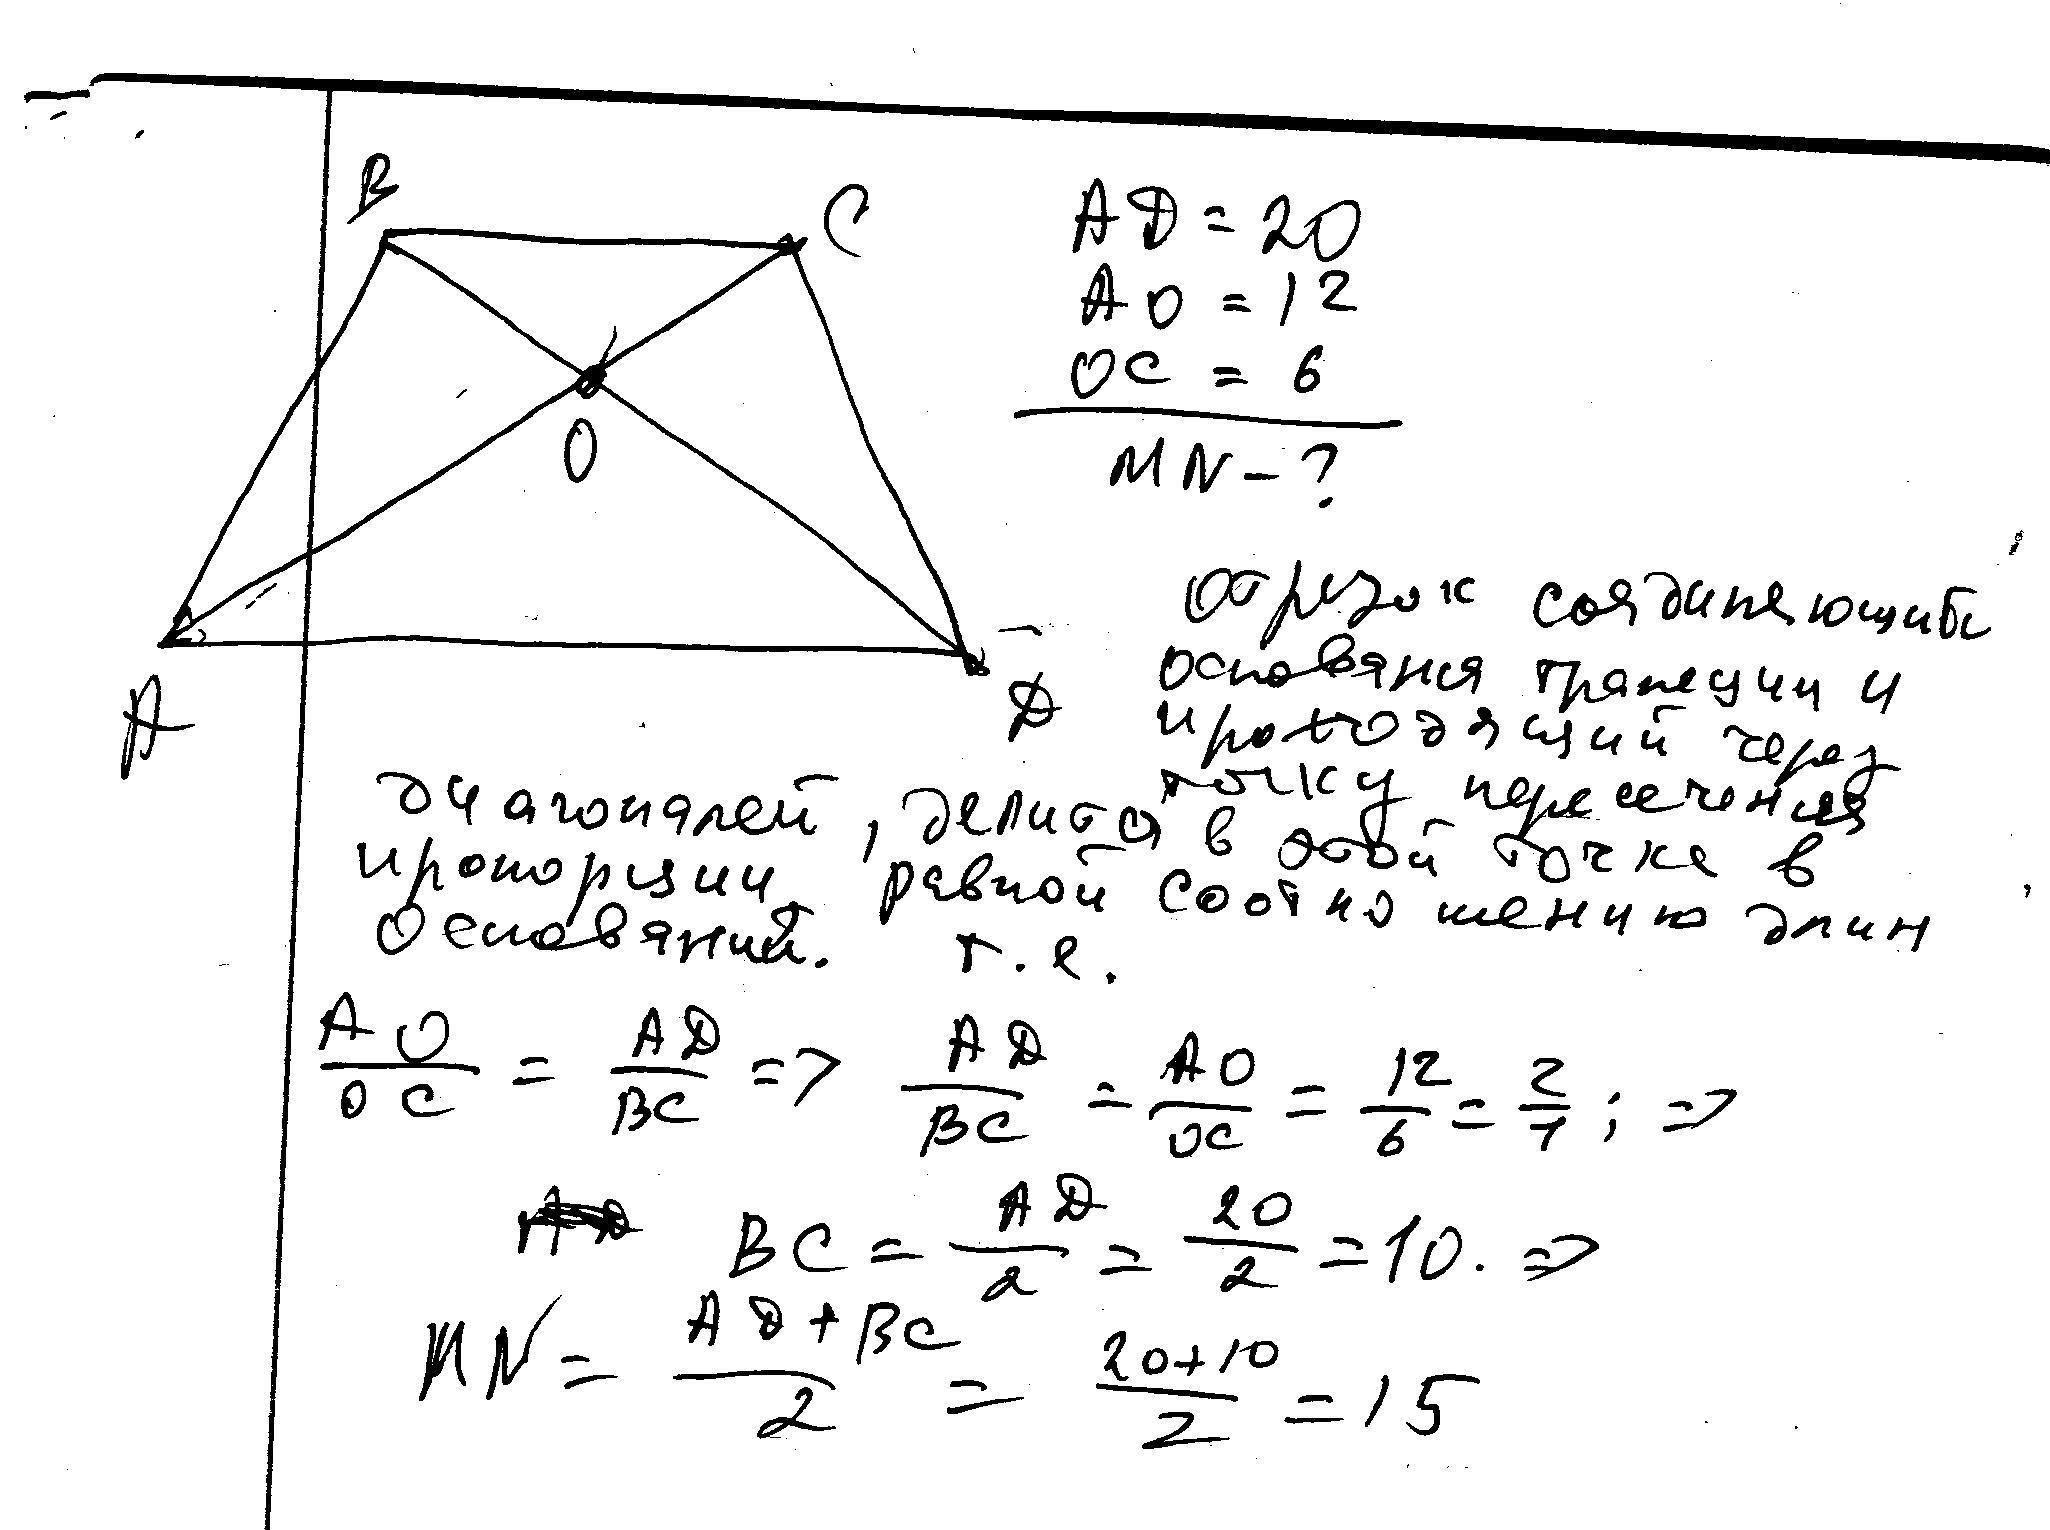 B
C
O
A
D
AD = 20
AO = 12
OC = 6
MN - ?
отрезок соединяющий
основания трапеции и
проходящий через
точку пересечения
диагоналей, делится в этой точке в
пропорции равной соотношению длин
оснований. т.е.
AO/OC = AD/BC => AD/BC = AO/OC = 12/6 = 2/1; =>
BC = AD/2 = 20/2 = 10. =>
MN = AD+BC/2 = 20+10/2 = 15